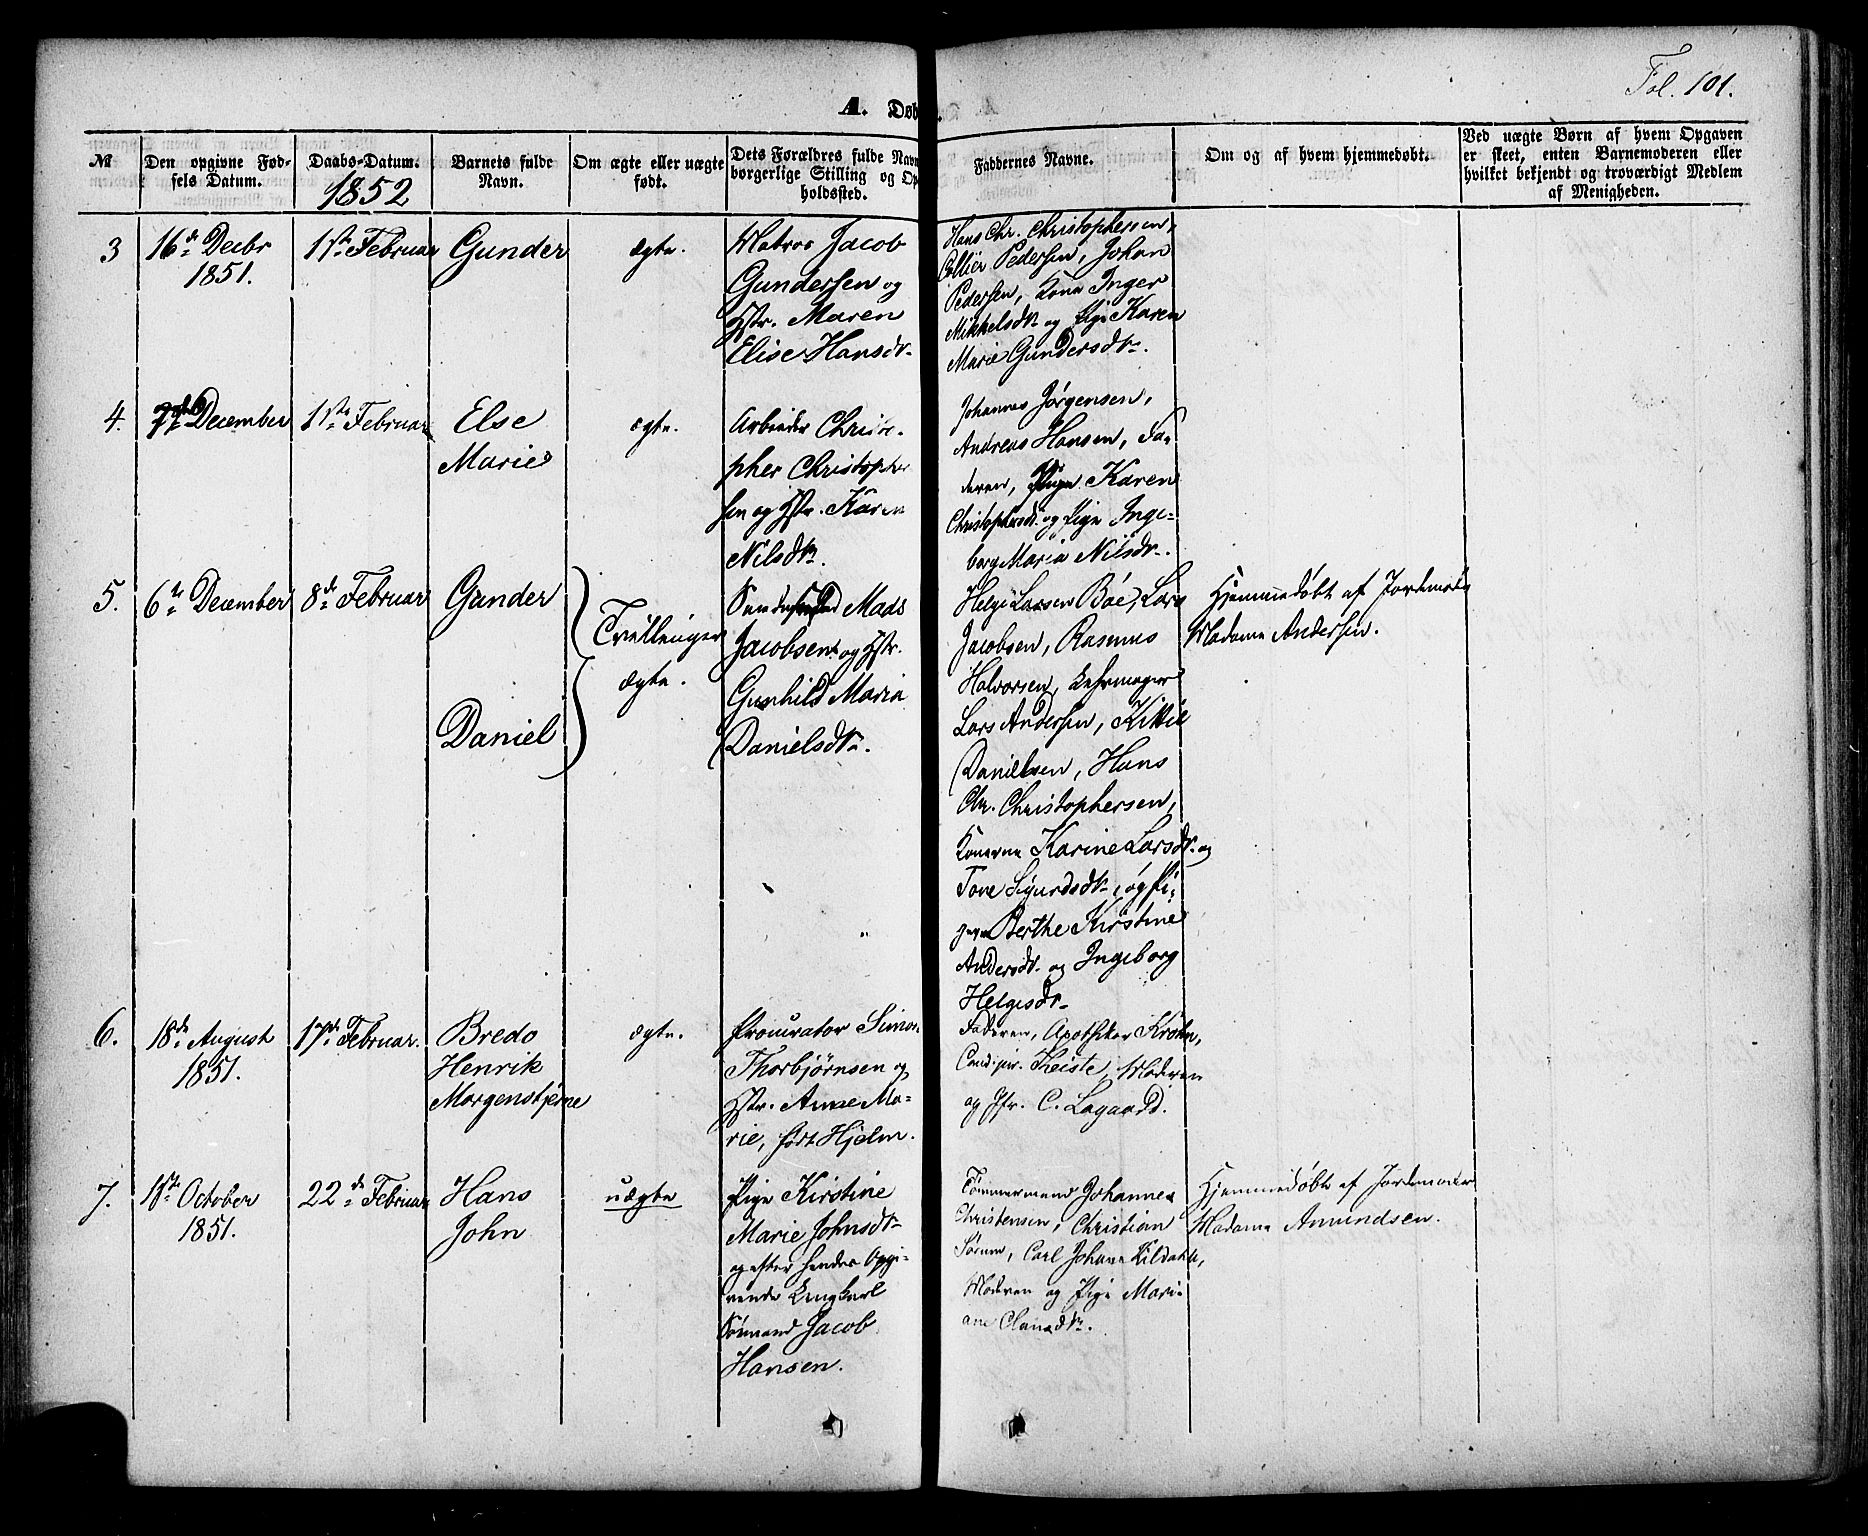 Fol. 101.
A. Døb
№
Den opgivne Fød-
sels Datum.
Daabs-Datum.
1852
Barnets fulde
Navn.
Om ægte eller uægte
født.
Dets Forældres fulde Navn
borgerlige Stilling og Op
holdssted.
Faddernes Navne.
Om og af hvem hjemmedøbt.
Ved uægte Børn af hvem Opgaven
er skeet, enten Barnemoderen eller
hvilket bekjendt og troværdigt Medlem
af Menigheden.
3
16de Decbr
1851.
1ste Februar
Gunder
ægte.
Matros Jacob
Gundersen og
Hstr. Maren
Elise Hansdr.
Hans Chr. Christophersen,
Pedersen, Johan
Pedersen, Kone Inger
Mikkelsdr. og Pige Karen
Marie Gundersdr.
4.
December
1ste Februar
Else
Marie
ægte.
Arbeider Christo-
pher Christopher
sen og Hstr. Karen
Nilsdr.
Johannes Jørgensen,
Andreas Hansen, Fa-
deren, Pige Karen
Christophersdr. og Pige Inge-
borg Maria Nilsdr.
5.
6te December
8de Februar
Gunder
Daniel
Tvillinger
ægte.
Mads
Jacobsen og Hstr.
Gunhild Maria
Danielsdr.
Helge Larsen Bøe, Lars
Jacobsen, Rasmus
Halvorsen,
Lars Andersen, Kittil
Danielsen, Hans
Chr. Christophersen,
Konerne Karine Larsdr. og
Tone Sigurdsdr., og Pi-
gerne Berthe Kirstine
Andersdr. og Ingeborg
Helgesdr.
Hjemmedøbt af Jordemoder
Madame Andersen.
6.
18de August
1851.
17de Februar.
Bredo
Henrik
Morgenstjerne
ægte.
Procurator Simon
Thorbjørnsen og
Hstr. Anne Ma-
rie, født Hjelm.
Faderen, Apotheker Krohn,
Cand. jur. Moderen
og Jfr. C. Lagaard.
7.
October
1851.
22de Februar
Hans
John
uægte
Pige Kirstine
Marie Johnsdr.
og efter hendes Opgi-
vende Ungkarl
Sømand Jacob
Hansen.
Tømmermand Johannes
Christensen, Christian
Sørum, Carl Johan Kildahl,
Moderen og Pige Mari-
ane Clausdr.
Hjemmedøbt af Jordemoder
Madame Amundsen.